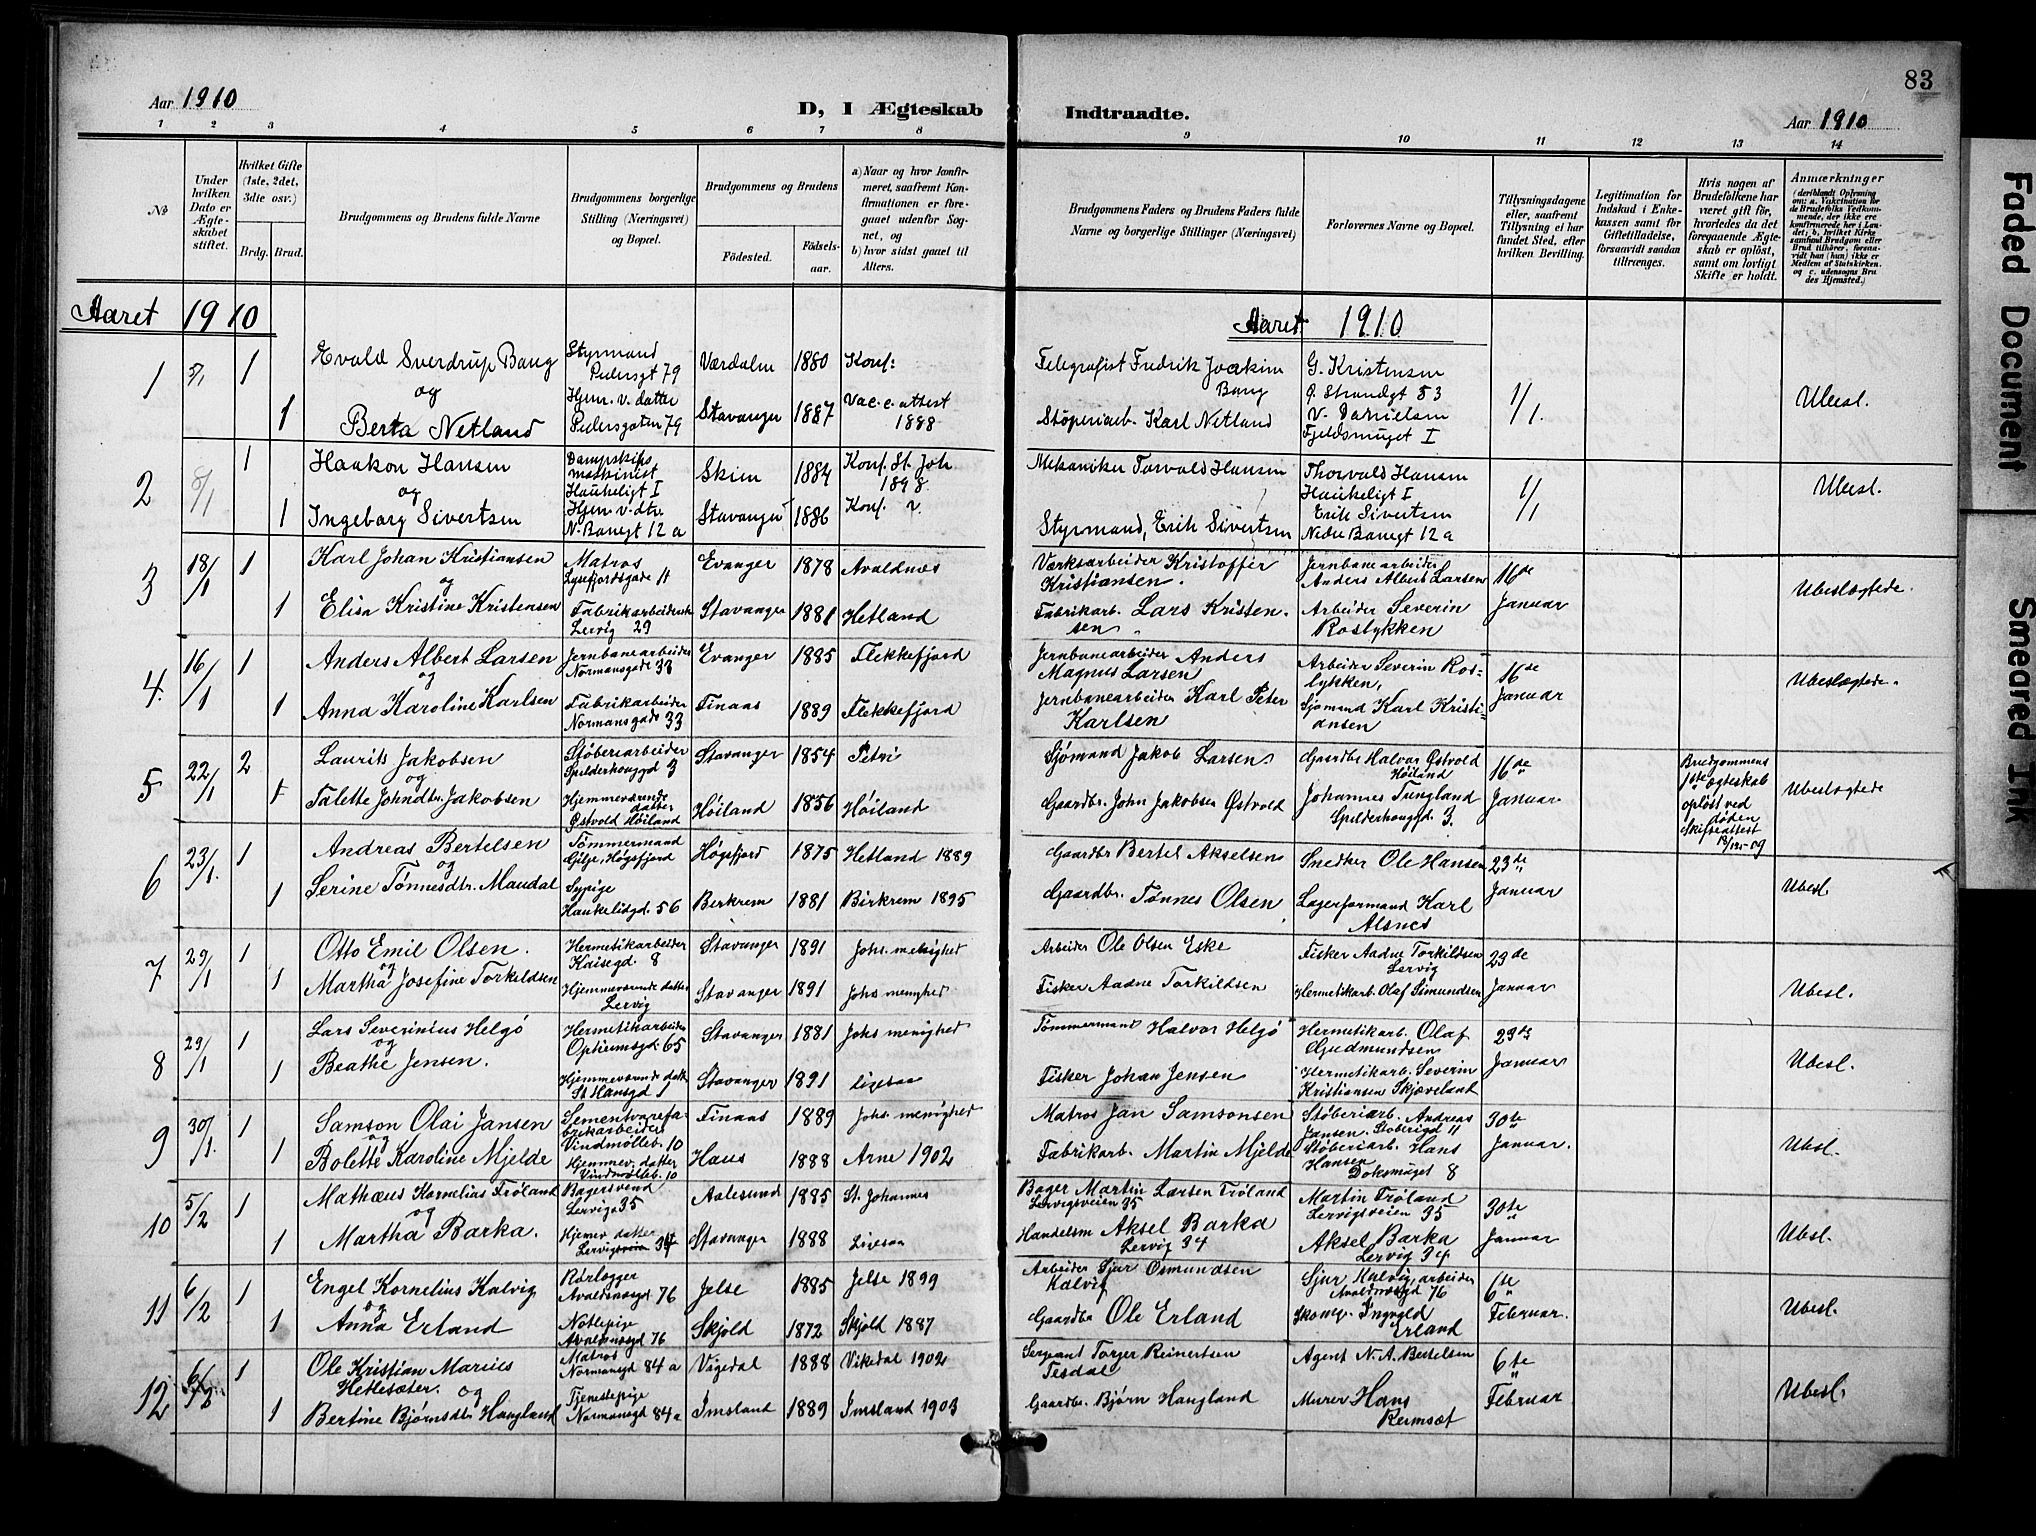 83
Aar 1910
D, I Ægteskab Indtraadte.
Aar 1910
1 2 3 4 5 6 7 8 9 10 11 12 13 14
№
Under hvilken Dato er Ægteskabet stiftet.
Hvilket Gifte (1ste, 2det, 3die osv.)
Brdg. Brud.
Brudgommens og Brudens fulde Navne
Brudgommens borgerlige Stilling (Næringsvei) og Bopæl.
Brudgommens og Brudens
Fødested. Fødselsaar.
a) Naar og hvor konfirmeret, saafremt Konfirmationen er foregaaet udenfor Sognet, og
b) hvor sidst gaaet til Alters.
Brudgommens Faders og Brudens Faders fulde Navne og borgerlige Stillinger (Næringsvei)
Forlovernes Navne og Bopæl.
Tillysningsdagene eller, saafremt Tillysning ei har fundet Sted, efter hvilken Bevilling.
Legitimation for Indskud i Enkekassen samt for Giftetilladelse, forsaavidt saadan tiltrænges.
Hvis nogen af Brudefolkene har været gift før, hvorledes da det foregaaende Ægteskab er opløst, samt om lovligt Skifte er holdt.
Anmærkninger
(deriblandt Oplysning om: a. Vakcination for de Brudefolks Vedkommende, der ikke ere konfirmerede her i Landet; b. hvilket Kirkesamfund Brudgom eller Brud tilhører, forsaavidt han (hun) ikke er Medlem af Statskirken, og c. udensogns Brudes Hjemsted.)
Aaret 1910
Aaret 1910
1 5/1 1 Evald Sverdrup Bang Styrmand Pedersgt 79 Værdalen 1880 Konf: Telegrafist Fredrik Joakim Bang G. Kristensen Ø. Strandgt 53 1/1. Ubesl.
og
1 Berta Netland Hjem. v. datter Pedersgaten 79 Stavanger 1887 Vac. c. attest 1888 Støperiarb. Karl Netland V. Danielsen Fjeldsmuget I
2 8/1 1 Haakon Hansen Dampskibs maskinist Haukeligt I Skien 1884 Konf. St. Joh. 1898. Mekaniker Torvald Hansen Thorvald Hansen Haukeligt I 1/1 Ubesl.
og
1 Ingeborg Sivertsen Hjem. v. dtr. N. Banegt 12 a Stavanger 1886 Konf. Styrmand, Erik Sivertsen Erik Sivertsen Nedre Banegt 12 a
3 18/1 1 Karl Johan Kristiansen Matros Lysefjordsgade 11 Evanger 1878 Avaldnæs Værksarbeider Kristoffer Kristiansen. Jernbanearbeider Anders Albert Larsen 16de Januar Ubeslægtede.
og
1 Elisa Kristine Kristensen Fabrikarbeiderske Lervig 29 Stavanger 1881 Hetland Fabrikarb. Lars Kristensen. Arbeider Severin Roslykken
4. 16/1 1 Anders Albert Larsen Jernbanearbeider Normansgade 33 Evanger 1885 Flekkefjord Jernbanearbeider Anders Magnus Larsen Arbeider Severin Roslykken, 16de Januar Ubeslægtede.
og
1 Anna Karoline Karlsen Fabrikarbeider Normansgade 33 Finaas 1889 Flekkefjord Jernbanearbeider Karl Peter Karlsen Sjømand Karl Kristiansen
5 22/1 2 Laurits Jakobsen Støberiarbeider Spilderhauggd 3 Stavanger 1854 Petri Sjømand Jakob Larsen. Gaardbr Halvar Østvold Høiland 16de Januar Brudgommens 1ste ægteskab opløst ved døden Skifteattest 18/12-09 Ubeslægtede
og
1 Talette Johndtr. Jakobsen Hjemmeværende datter Østvold Høiland Høiland 1856 Høiland Gaardbr. John Jakobsen Østvold Johannes Tungland Spilderhauggd. 3.
6 23/1. 1 Andreas Bertelsen Tømmermand Gilje, Høgsfjord Høgsfjord 1875 Hetland 1889 Gaardbr Bertel Akselsen Snedker Ole Hansen 23de Januar Ubesl.
og
1 Serine Tønnesdtr. Maudal Sypige Haukelidgd. 56 Berkrem 1881 Birkrem 1895 Gaardbr. Tønnes Olsen Lagerformand Karl Alsnes
7 29/1 1 Otto Emil Olsen. Hermetikarbeider Kaisegd. 8 Stavanger 1891 Johs. menighed Arbeider Ole Olsen Eske Fisker Aadne Torkildsen Lervig 23de Januar Ubesl.
og
1 Martha Josefine Torkildsen Hjemmeværende datter Lervig Stavanger 1891 Johs menighed Fisker Aadne Torkildsen Hermetikarb. Olaf Simundsen
8 29/1 1 Lars Severinius Helgø Hermetikarbeider Optiemsgd. 65 Stavanger 1881 Johs menighed Tømmermand Halvor Helgø Hermetikarb. Olaf Gudmundsen 29de Januar Ubesl.
og
1 Beathe Jensen. Hjemmeværende datt St Hansgd 1 Stavanger 1891 ligesaa Fisker Johan Jensen Hermetikarb. Severin Kristiansen Skjæveland
9 30/1. 1 Samson Olai Jansen Sementvarefabrikarbeider Vindmølleb. 10 Finaas 1889 Johs. menighed Matros Jan Samsonsen Støberiarb. Andreas Jansen. Støberigd 11 30te Januar. Ubesl.
og
1 Bolette Karoline Mjelde Hjemmev. datter Vindmølleb. 10 Haus 1888 Arne 1902 Fabrikarb. Martin Mjelde Støberiarb. Hans Hansen Doksmuget 8
10 5/2 1 Mathæus Kornelius Frøland Bagersvend Lervigs 35 Aalesund 1885 St. Johannes Bager Martin Larsen Frøland Lervigsveien 35 Martin Frøland Lervigsveien 35 30te Januar Ubesl.
og
1 Martha Barka. Hjemv. datter Lervigsveien 34 Stavanger 1888 Ligesaa Handelsm Aksel Barka Lervig 34 Aksel Barka Lervig 34
11 6/2 1 Engel Kornelius Kalvig Rørlægger Avaldnæsgd 76 Jelse 1885 Jelse 1899 Arbeider Sjur Osmundsen Kalvig Sjur Kalvig, arbeider Avaldnæsgd 76 6te Februar. Ubesl.
og
1 Anna Erland Avaldnæsgd 76 Skjold 1872 Skjold 1887 Gaardbr Ole Erland Skomg. Ingvald Erland
12 6/2 1 Ole Kristian Marius Hetlesæter. Matros Normansgd 84 a Vigedal 1888 Vikedal 1902 Sergeant Torger Reinertsen Tesdal Agent N. A. Bertelsen 6te Februar Ubesl.
og
1 Bertine Bjørnsdtr Haugland Tjenestepige Normansgd 84 a Imsland 1889 Imsland 1903 Gaardbr. Bjørn Haugland Murer Hans Remsæt
Faded Document
Smeared Ink